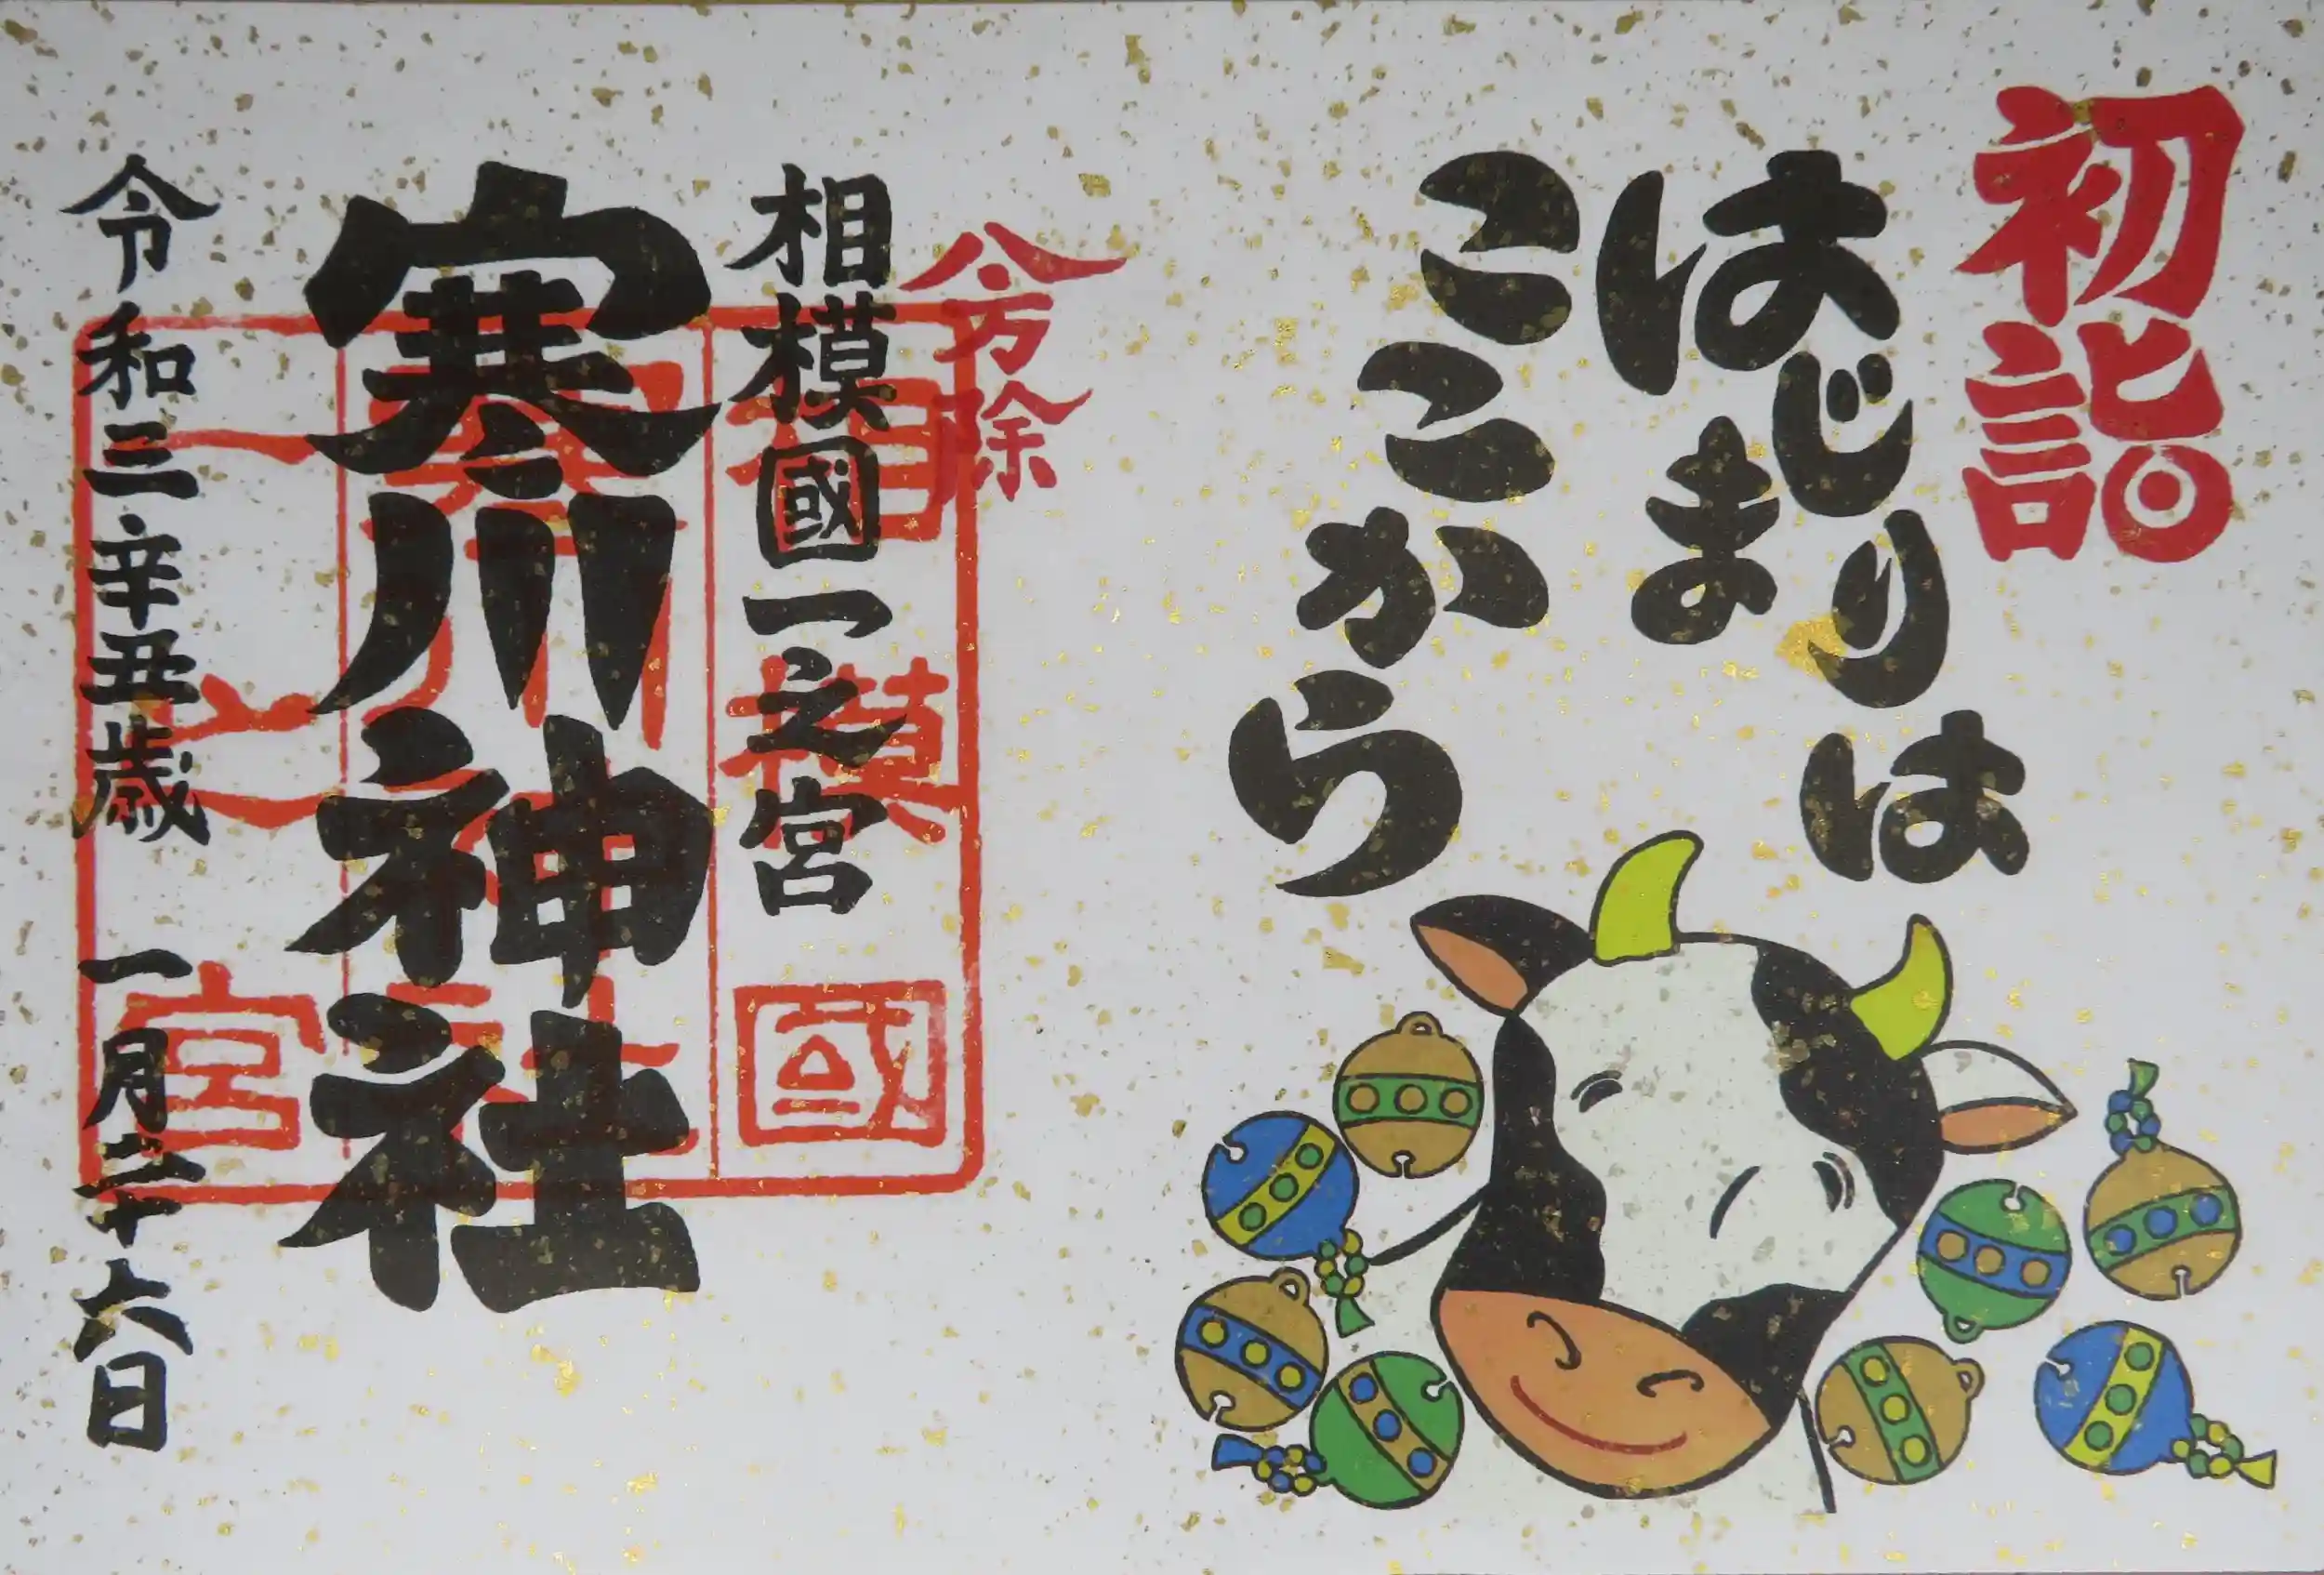 初詣
はじまりは
ここから
八方除
相模國一之宮
寒川神社
令和三辛丑歳 一月二十六日
相模國
寒川神社
一之宮